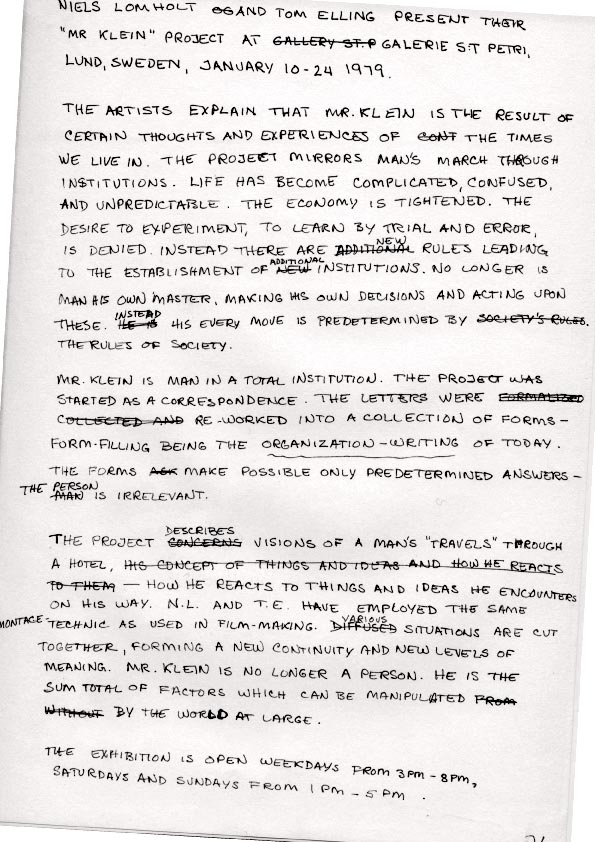 NIELS LOMHOLT AND TOM ELLING PRESENT THEIR
"MR KLEIN" PROJECT AT GALLERY ST.P GALERIE S:T PETRI,
LUND, SWEDEN, JANUARY 10-24 1979.
THE ARTISTS EXPLAIN THAT MR. KLEIN IS THE RESULT OF
CERTAIN THOUGHTS AND EXPERIENCES OF CONT THE TIMES
WE LIVE IN. THE PROJECT MIRRORS MAN'S MARCH THROUGH
INSTITUTIONS. LIFE HAS BECOME COMPLICATED, CONFUSED,
AND UNPREDICTABLE. THE ECONOMY IS TIGHTENED. THE
DESIRE TO EXPERIMENT, TO LEARN BY TRIAL AND ERROR,
NEW
IS DENIED. INSTEAD THERE ARE ADDITIONAL RULES LEADING
ADDITIONAL
TO THE ESTABLISHMENT OF NEW INSTITUTIONS. NO LONGER IS
MAN HIS OWN MASTER, MAKING HIS OWN DECISIONS AND ACTING UPON
INSTEAD
THESE. HE IS HIS EVERY MOVE IS PREDETERMINED BY SOCIETY'S RULES.
THE RULES OF SOCIETY.
MR. KLEIN IS MAN IN A TOTAL INSTITUTION. THE PROJECT WAS
STARTED AS A CORRESPONDENCE. THE LETTERS WERE FORMALIZED
COLLECTED AND RE-WORKED INTO A COLLECTION OF FORMS -
FORM-FILLING BEING THE ORGANIZATION-WRITING OF TODAY.
THE FORMS ASK MAKE POSSIBLE ONLY PREDETERMINED ANSWERS -
THE PERSON
MAN IS IRRELEVANT.
DESCRIBES
THE PROJECT CONCERNS VISIONS OF A MAN'S "TRAVELS" THROUGH
A HOTEL, HIS CONCEPT OF THINGS AND IDEAS AND HOW HE REACTS
TO THEM — HOW HE REACTS TO THINGS AND IDEAS HE ENCOUNTERS
ON HIS WAY. N.L. AND T.E. HAVE EMPLOYED THE SAME
VARIOUS
MONTAGE-TECHNIC AS USED IN FILM-MAKING. DIFFUSED SITUATIONS ARE CUT
TOGETHER, FORMING A NEW CONTINUITY AND NEW LEVELS OF
MEANING. MR. KLEIN IS NO LONGER A PERSON. HE IS THE
SUM TOTAL OF FACTORS WHICH CAN BE MANIPULATED FROM
WITHOUT BY THE WORLD AT LARGE.
THE EXHIBITION IS OPEN WEEKDAYS FROM 3PM - 8PM,
SATURDAYS AND SUNDAYS FROM 1PM - 5PM.